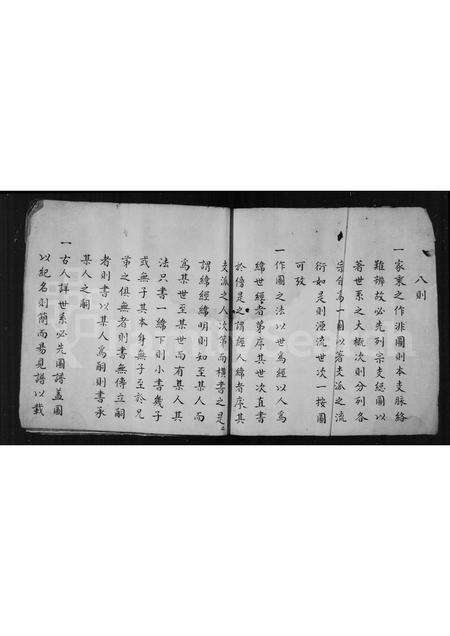 八則
一家乘之作非圖則本支脈絡
難辨故必先列宗支總圖以
著世系之大概次則分列各
宗自為一圖以著支派之流
衍如是則源流世次一按圖
可攷
一作圖之法以世為經以人為
緯世經者第序其世次直書
於傍是之謂經人緯者序其
支派之人次第而橫書之是
謂緯經緯明則知至某人而
為某世至某世而有某人其
法只書一緯下則小書幾子
或無子其本身無子至於兄
弟之俱無者則書無傳立嗣
者則書以某人為嗣則書承
某人之嗣
一古人詳世系必先圖譜蓋圖
以紀名則簡而易見譜以載